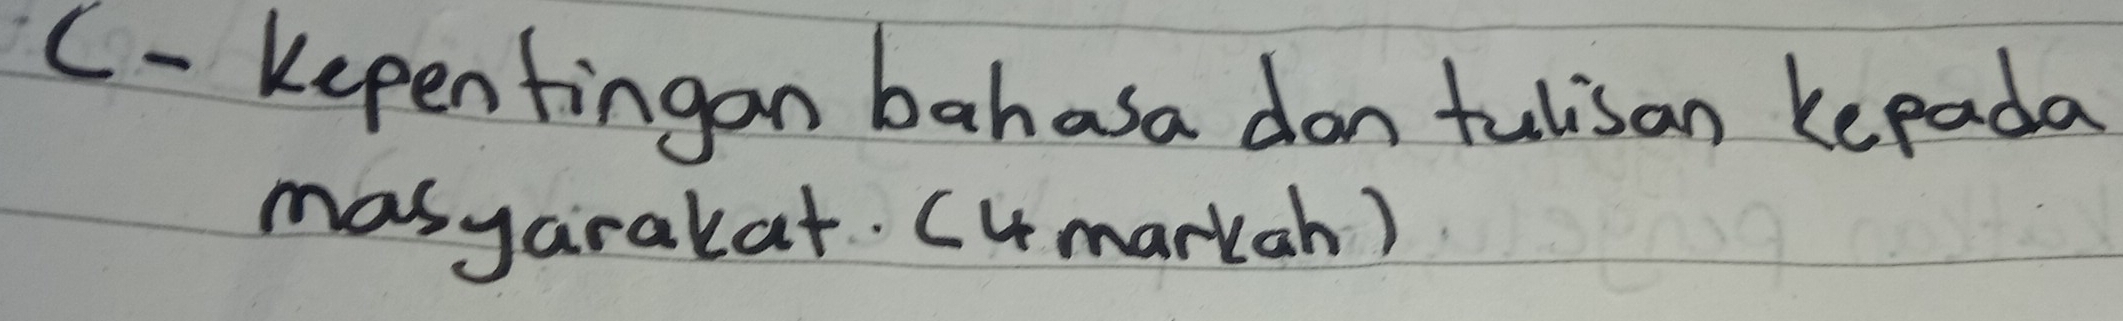 C- kepentingan bahasa dan tulisan kepada
masyarakat. (4 markah)